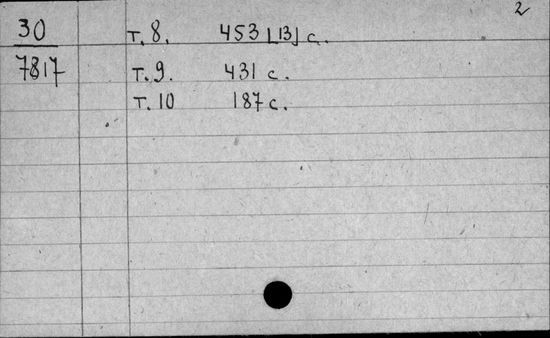 2
30 т. 8. 453 [13] с.
7817 т. 9. 431 с.
т. 10 187 с.